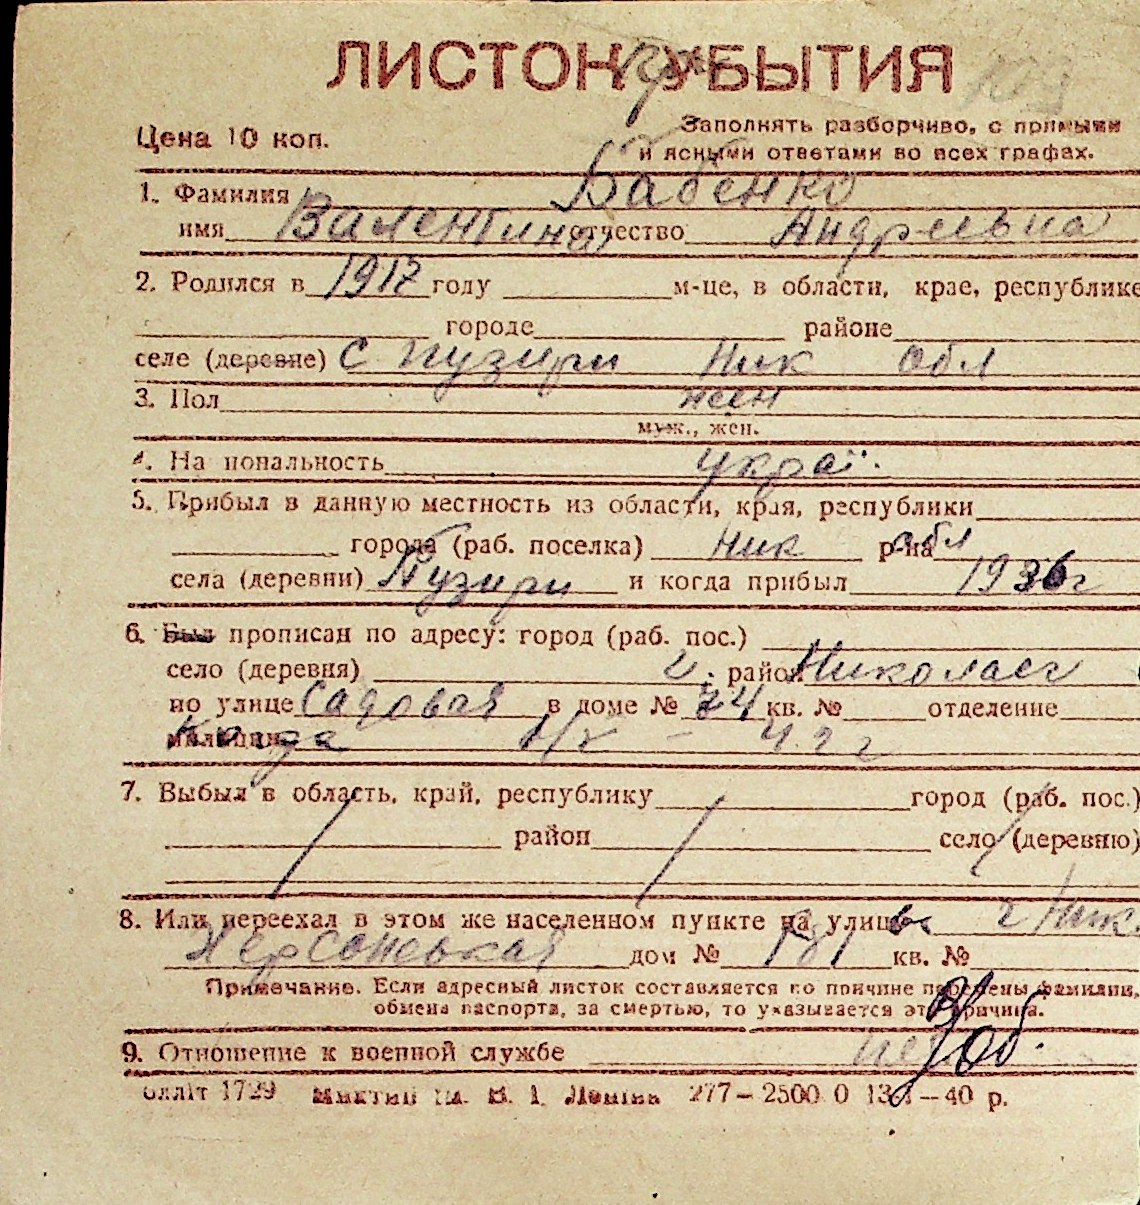 ЛИСТОК УБЫТИЯ
Цена 10 коп.
Заполнять разборчиво, с прямыми
и ясными ответами во всех графах.
1. Фамилия Бабенко
имя Валентина отчество Андреевна
2. Родился в 1917 году м-це, в области, крае, республике
городе районе
селе (деревне) с Пузири Ник обл
3. Пол жен
муж., жен.
4. На иональность укра
5. Прибыл в данную местность из области, края, республики
города (раб. поселка) Ник р-на обл
села (деревни) Пузири и когда прибыл 1936 г
6. Был прописан по адресу: город (раб. пос.)
село (деревня) г. район Николаев
по улице Садовая в доме № 24 кв. № отделение
милиции
7. Выбыл в область, край, республику город (раб. пос.)
район село (деревню)
8. Или переехал в этом же населенном пункте на улицу г Ник.
Херсонская дом № 131 кв. №
Примечание. Если адресный листок составляется по причине перемены фамилии,
обмена паспорта, за смертью, то указывается эта причина.
9. Отношение к военной службе
Оλліт 1729 277–2500 0 –40 р.